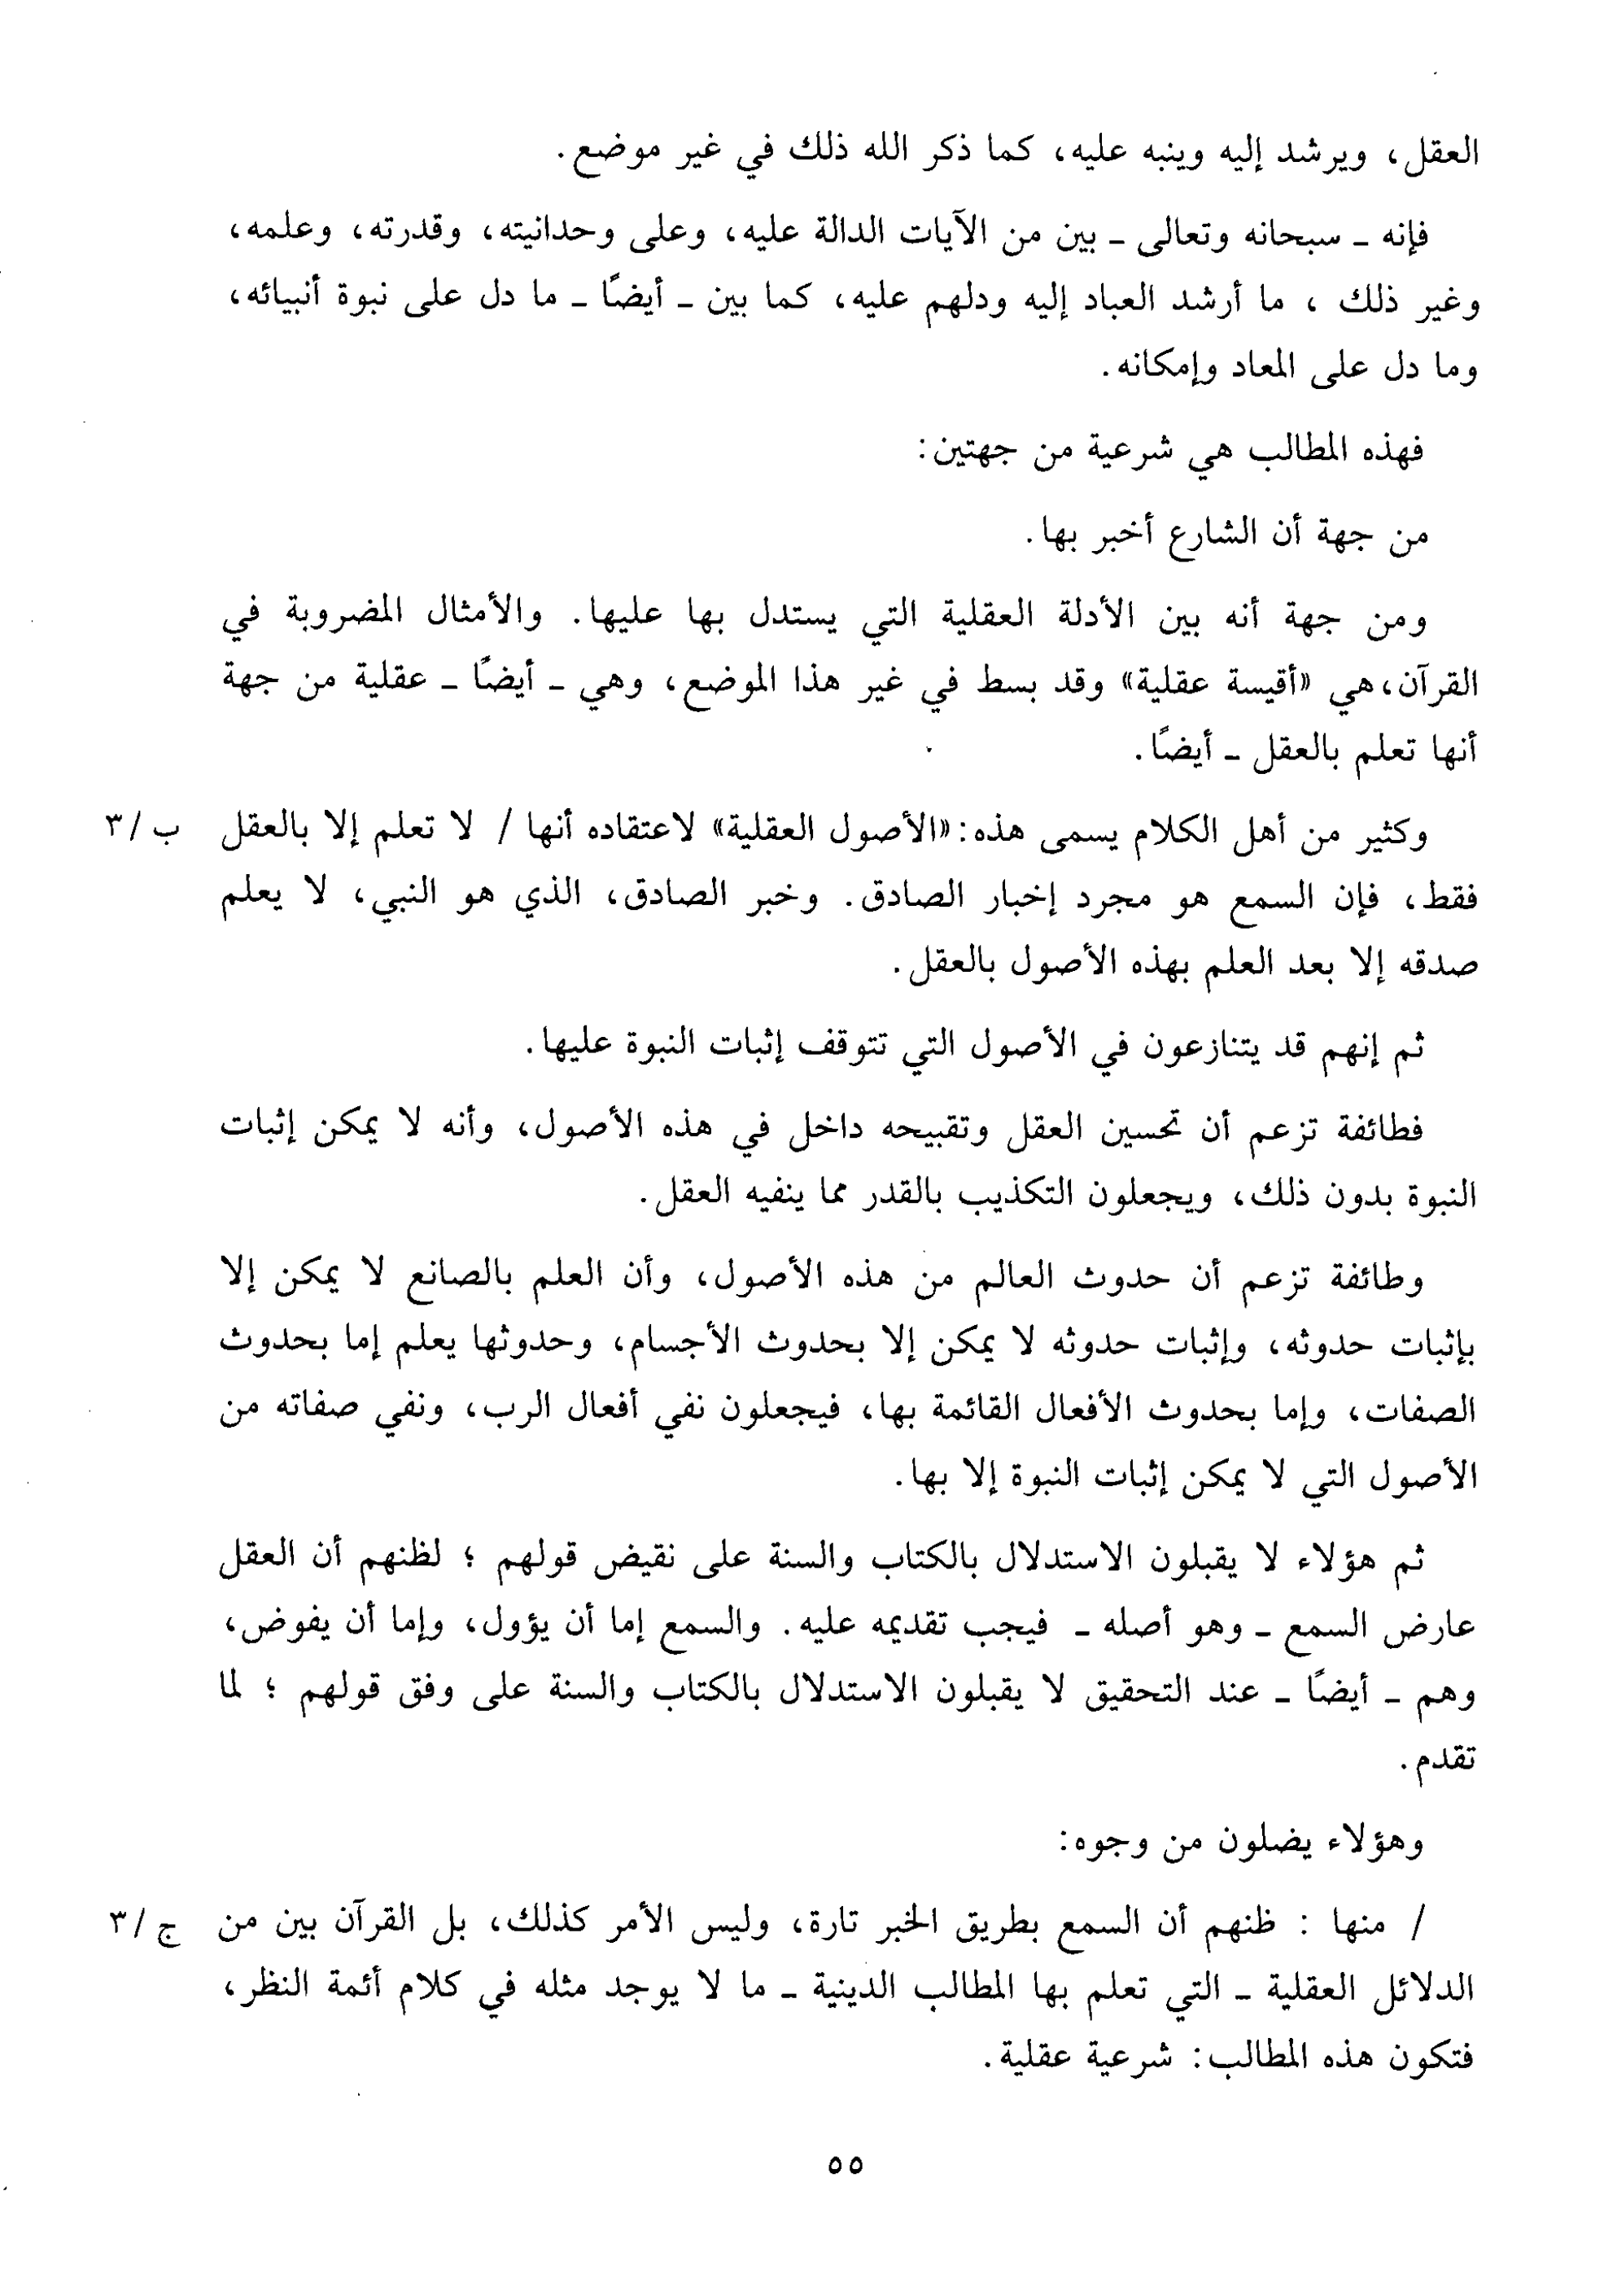 العقل، ويرشد إليه وينبه عليه، كما ذكر الله ذلك في غير موضع.
فإنه ـ سبحانه وتعالى ـ بين من الآيات الدالة عليه، وعلى وحدانيته، وقدرته، وعلمه،
وغير ذلك ، ما أرشد العباد إليه ودلهم عليه، كما بين ـ أيضًا ـ ما دل على نبوة أنبيائه،
وما دل على المعاد وإمكانه.
فهذه المطالب هي شرعية من جهتين:
من جهة أن الشارع أخبر بها.
ومن جهة أنه بين الأدلة العقلية التي يستدل بها عليها. والأمثال المضروبة في
القرآن،هي «أقيسة عقلية» وقد بسط في غير هذا الموضع، وهي ـ أيضًا ـ عقلية من جهة
أنها تعلم بالعقل ـ أيضًا.
وكثير من أهل الكلام يسمى هذه: «الأصول العقلية» لاعتقاده أنها / لا تعلم إلا بالعقل ب /٣
فقط، فإن السمع هو مجرد إخبار الصادق. وخبر الصادق، الذي هو النبي، لا يعلم
صدقه إلا بعد العلم بهذه الأصول بالعقل.
ثم إنهم قد يتنازعون في الأصول التي تتوقف إثبات النبوة عليها.
فطائفة تزعم أن تحسين العقل وتقبيحه داخل في هذه الأصول، وأنه لا يمكن إثبات
النبوة بدون ذلك، ويجعلون التكذيب بالقدر مما ينفيه العقل.
وطائفة تزعم أن حدوث العالم من هذه الأصول، وأن العلم بالصانع لا يمكن إلا
بإثبات حدوثه، وإثبات حدوثه لا يمكن إلا بحدوث الأجسام، وحدوثها يعلم إما بحدوث
الصفات، وإما بحدوث الأفعال القائمة بها، فيجعلون نفي أفعال الرب، ونفي صفاته من
الأصول التي لا يمكن إثبات النبوة إلا بها.
ثم هؤلاء لا يقبلون الاستدلال بالكتاب والسنة على نقيض قولهم ؛ لظنهم أن العقل
عارض السمع ـ وهو أصله ـ فيجب تقديمه عليه. والسمع إما أن يؤول، وإما أن يفوض،
وهم ـ أيضًا ـ عند التحقيق لا يقبلون الاستدلال بالكتاب والسنة على وفق قولهم ؛ لما
تقدم.
وهؤلاء يضلون من وجوه:
/ منها : ظنهم أن السمع بطريق الخبر تارة، وليس الأمر كذلك، بل القرآن بين من ج /٣
الدلائل العقلية ـ التي تعلم بها المطالب الدينية ـ ما لا يوجد مثله في كلام أئمة النظر،
فتكون هذه المطالب: شرعية عقلية.
٥٥